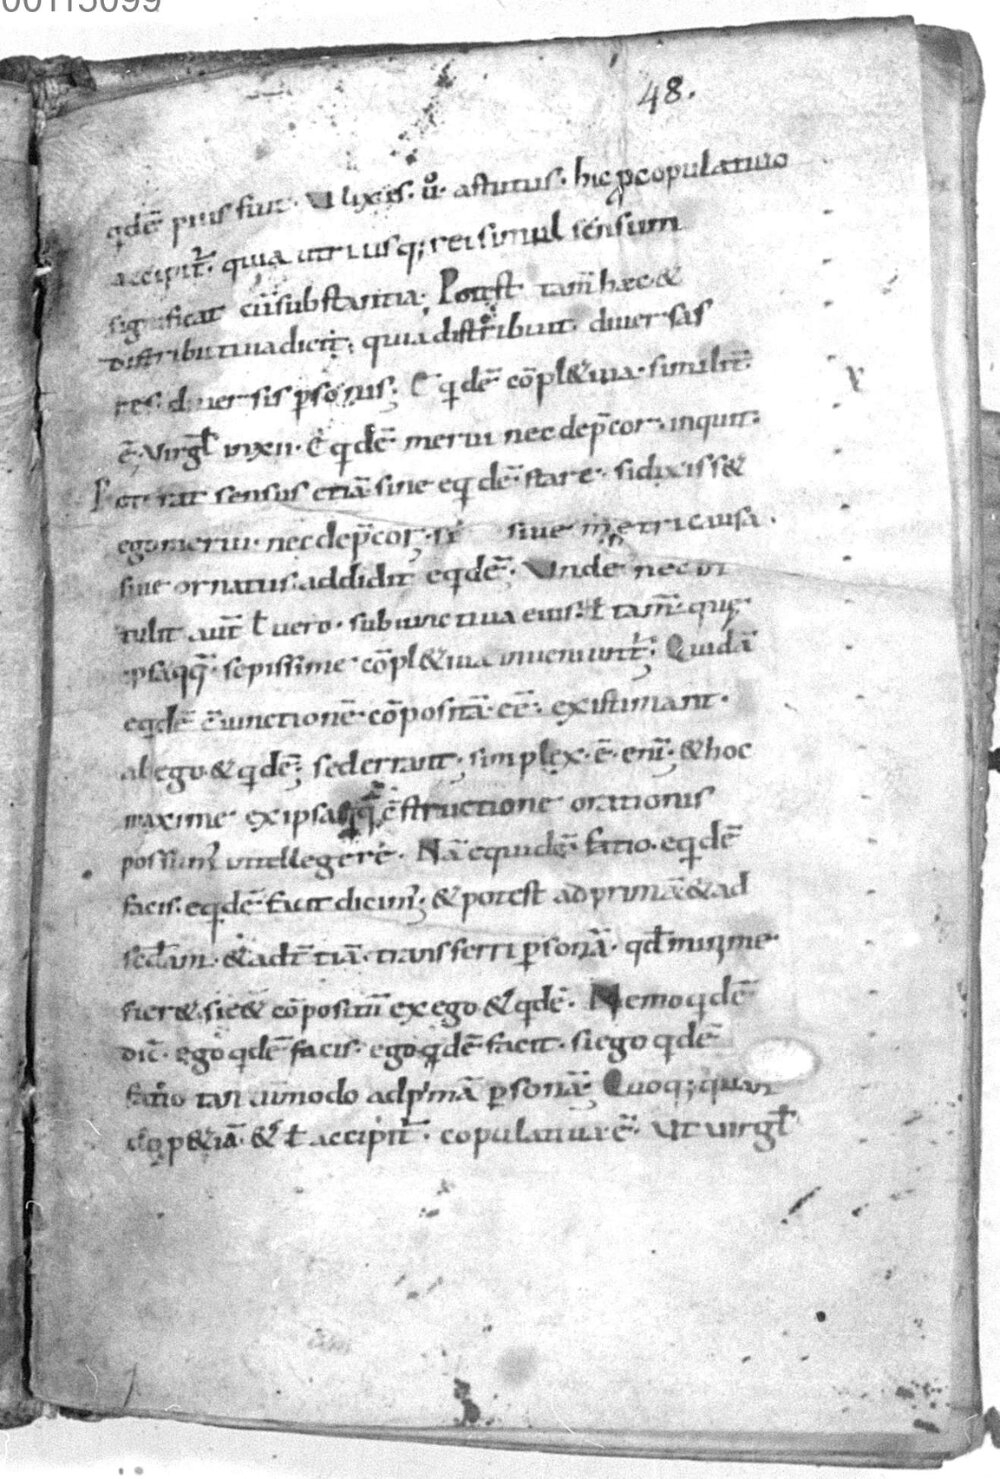 00115099
48.
qdē pius fuit. Ulixes. ů. astutus. hic ꝓcopulatiuo
accipit̄. quia utriusq; rei simul sensum
significat cū substantia; Potest tam̄ hæc &
distributiua dici; quia distribuit diuersas
res diuersis ꝑsonis; Eqdē cōpl&iua. similit̄
ē. Virgł in xii. Eqdē merui nec dep̄cor. inquit;
Poterat sensus etiā sine eqdē stare. si dixiss&
ego merui. nec dep̄cor. siue metri causa.
siue ornatus. addidit eqdē. Unde nec in
tulit aut̄ ł uero. subiunctiua eius. ł tam̄. quę
ipsa qq̄. sepissime cōpl&iua inueniunt̄; Quidā
eqdē c̄iunctionē. cōpositā. eē. existimant.
ab ego & qdē; sed errant; simplex. ē. eni; & hoc
maxime ex ipsa c̄structione orationis
possum; intellegere. Nā equidē facio. eqdē
facis. eqdē facit dicim; & potest ad primā & ad
sc̄dam. & ad t̄tiā. transferri ꝑsonā. qd̄ minime
fier& . si e& cōpositū ex ego & qdē. Nemo qdē
dic̄. ego qdē facis. ego qdē facit. si ego qdē
facio tantummodo ad pimā ꝑsonā; Quoq; quan
do p & iā. & ł accipit̄. copulatiua ē. Ut uirgł